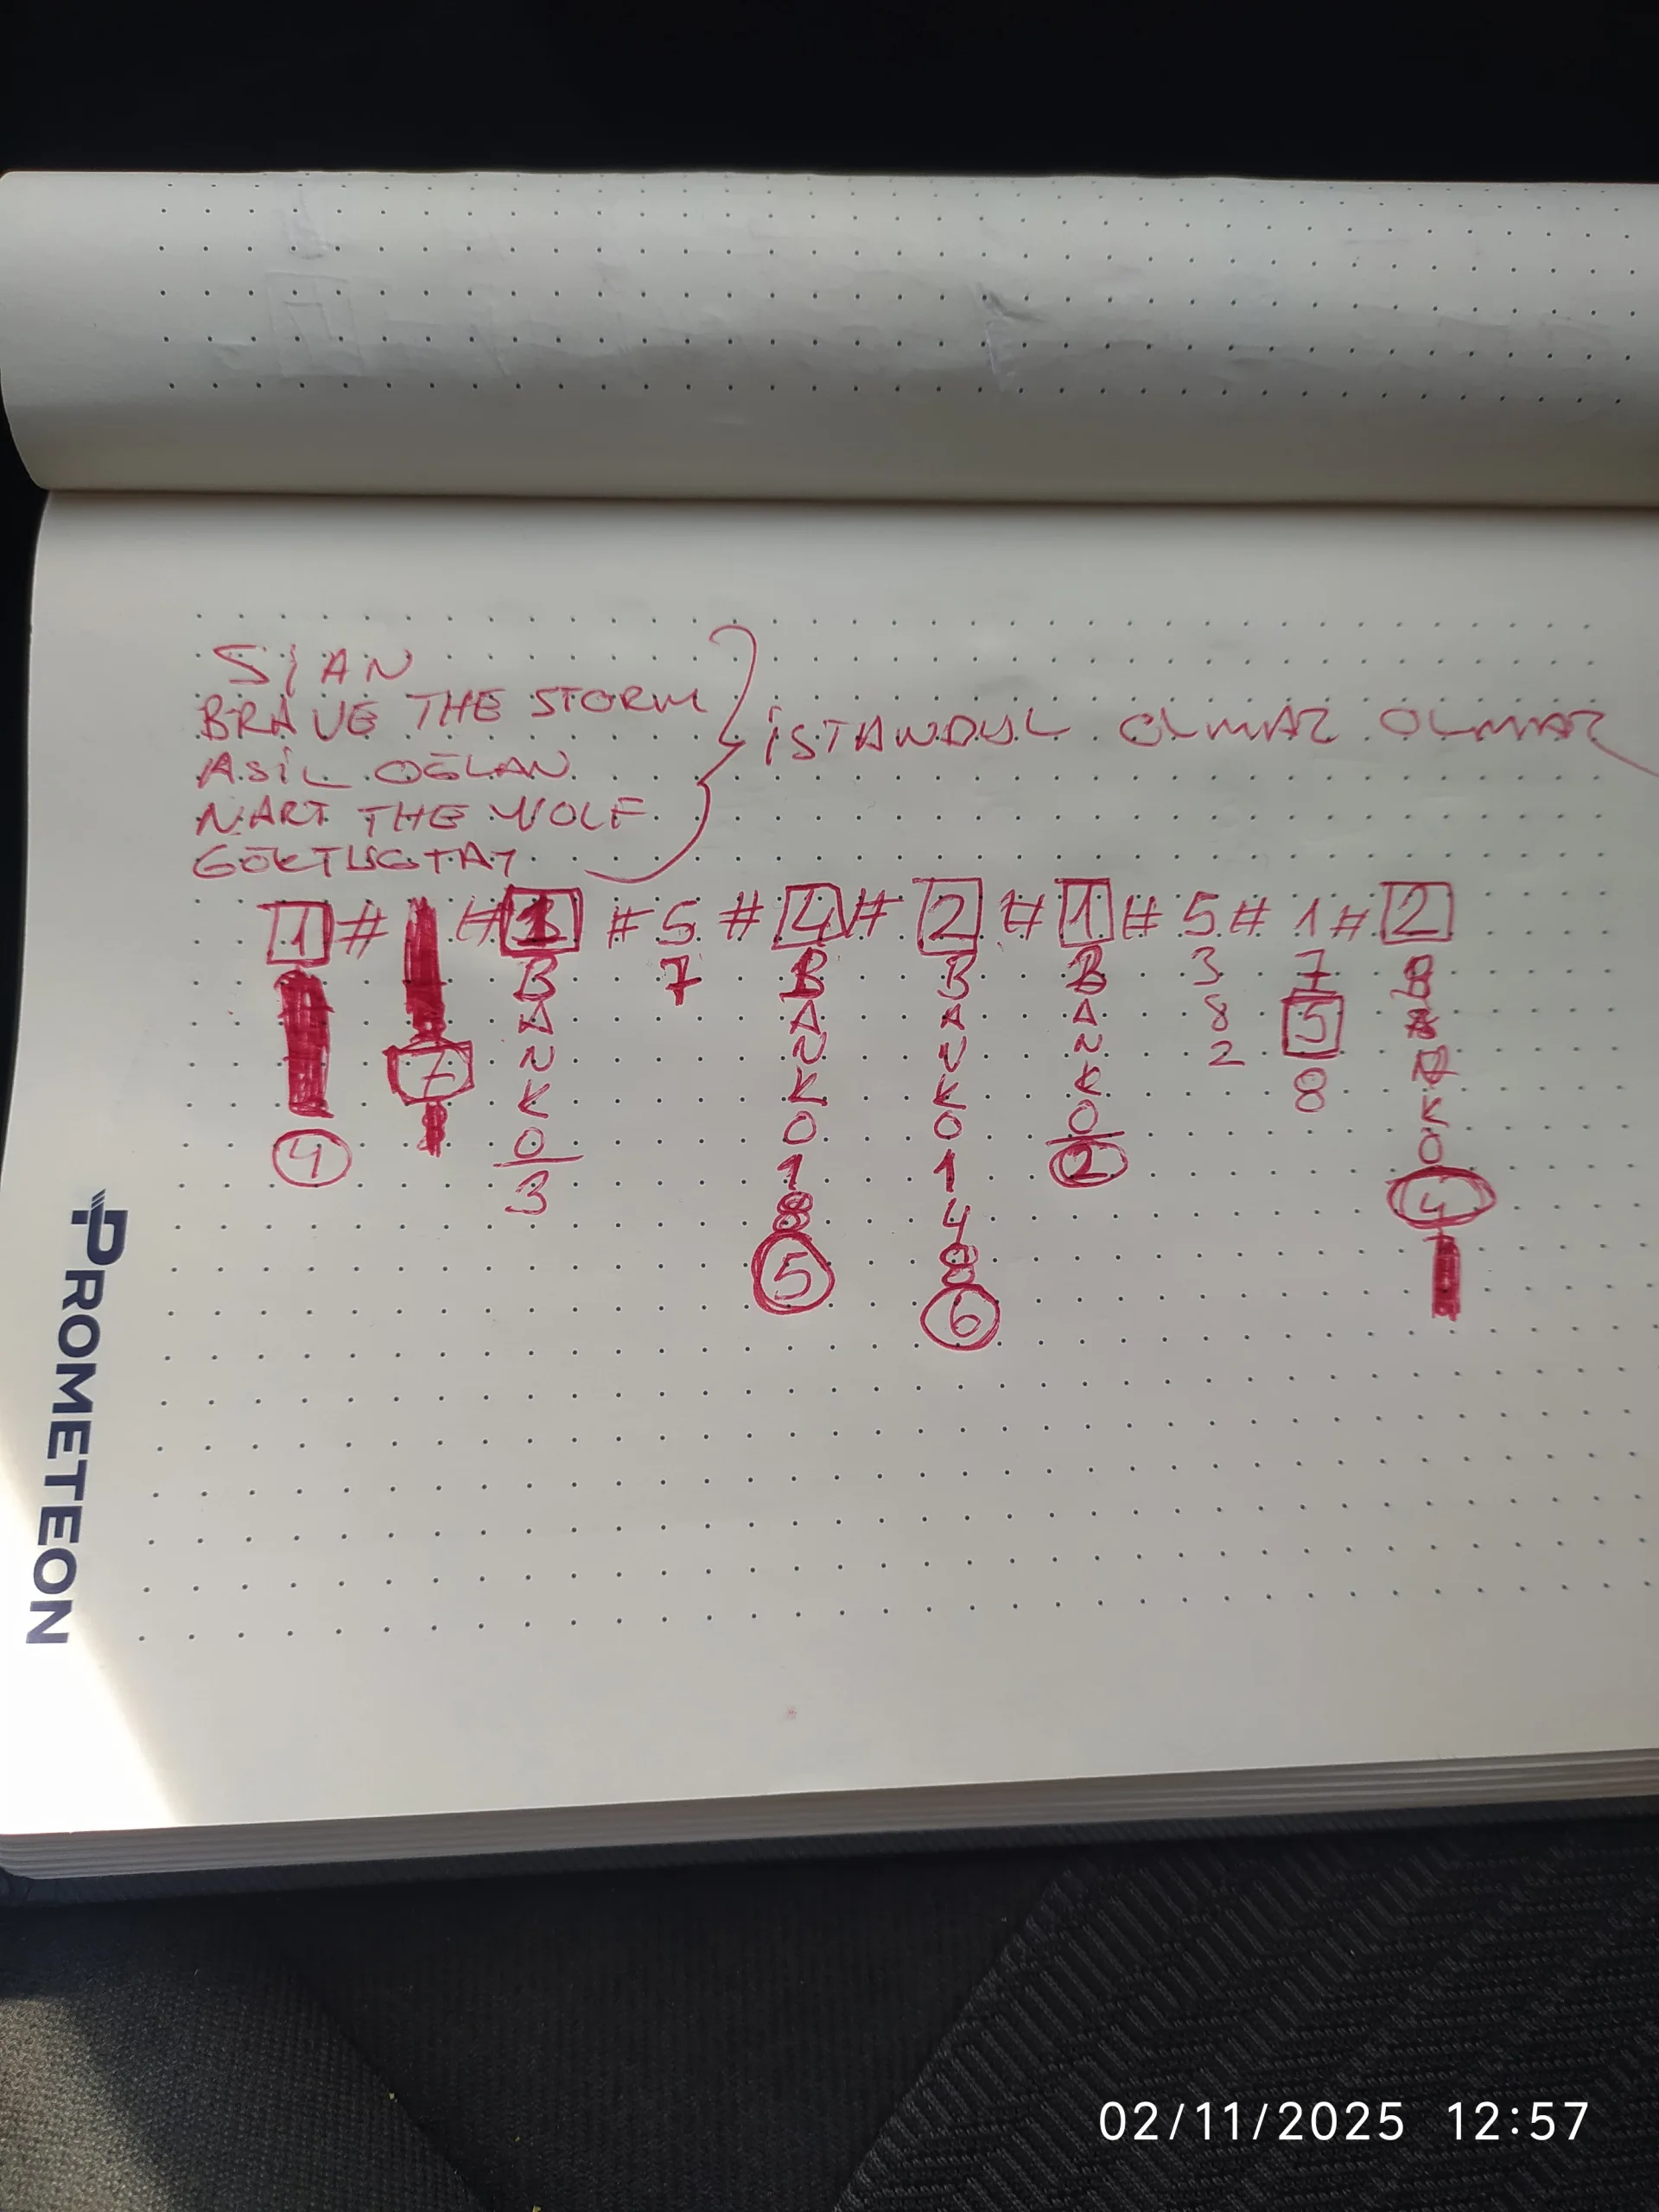 SİAN
BRAVE THE STORM
ASİL OĞLAN
NART THE WOLF
GÖKTUGTAY
İSTANBUL OLMAZ OLMAZ
1 # # # 5 # 4 # 2 # 1 # 5 # 1 # 2
B 7 B B B 3 7 B
A A A A 8 5 A
N N N N 2 8 N
K K K K K
O O O O O
3 1 1 2 4
8 4
5 8
6
PROMETEON
02/11/2025 12:57